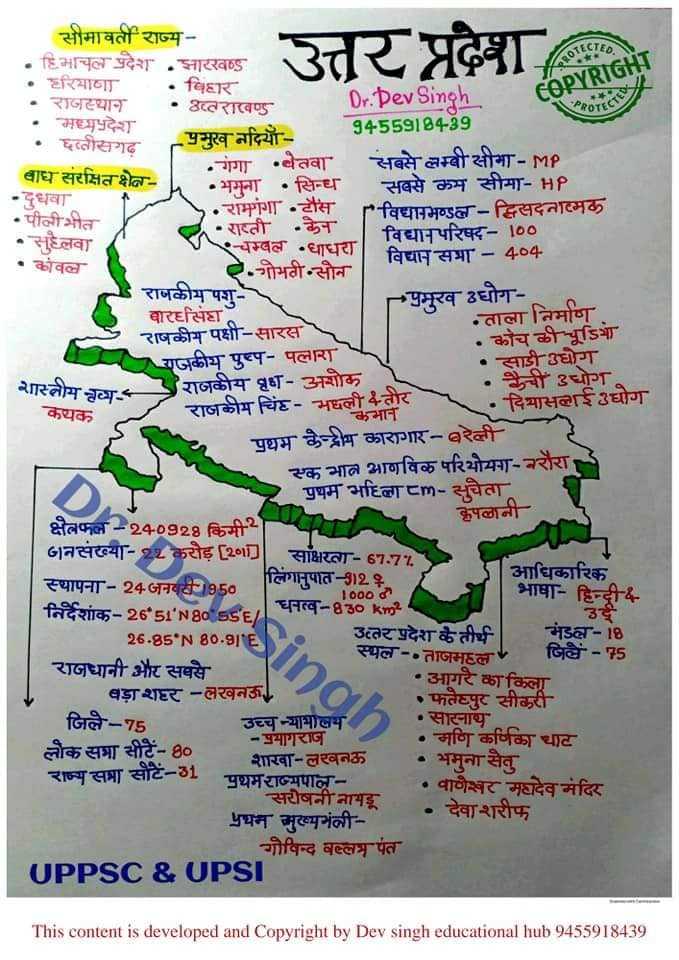 उत्तर प्रदेश
PROTECTED
COPYRIGHT
PROTECTED
Dr. Dev Singh
9455918439
सीमावर्ती राज्य-
• हिमाचल प्रदेश
• हरियाणा
• राजस्थान
• मध्यप्रदेश
• छत्तीसगढ़
• झारखण्ड
• बिहार
• उत्तराखण्ड
प्रमुख नदियाँ-
• गंगा • बेतवा
• यमुना • सिन्ध
• रामगंगा • टौंस
• राप्ती • केन
• चम्बल • घाघरा
• गोमती • सोन
बाघ संरक्षित क्षेत्र-
• दुधवा
• पीलीभीत
• सुहेलवा
सबसे लम्बी सीमा- MP
सबसे कम सीमा- HP
विधानमण्डल - द्विसदनात्मक
विधानपरिषद- 100
विधान सभा - 404
प्रमुख उधोग-
• ताला निर्माण
• काँच की चूडियाँ
• साडी उधोग
• कैंची उधोग
• दियासलाई उधोग
राजकीय पशु-
बारहसिंघा
राजकीय पक्षी-सारस
राजकीय पुष्प- पलाश
राजकीय वृक्ष- अशोक
राजकीय चिंह- मछली & तीर
कमान
शास्त्रीय नृत्य-
कथक
प्रथम केन्द्रीय कारागार- बरेली
एक मात्र आणविक परियोजना- नरौरा
प्रथम महिला CM- सुचेता
कृपलानी
क्षेत्रफल - 240928 किमी²
जनसंख्या- 22 करोड़ [2011]
स्थापना- 24 जनवरी 1950
निर्देशांक- 26°51'N 80°55'E/
26.85°N 80.91°E
राजधानी और सबसे
बड़ा शहर -लखनऊ
जिले-75
लोक सभा सीटें- 80
राज्य सभा सीटें-31
साक्षरता- 67.7%
लिंगानुपात-912 ♀
1000 ♂
घनत्व-830 km²
उच्च न्यायालय
- प्रयागराज
शाखा- लखनऊ
प्रथम राज्यपाल-
सरोजनी नायडू
प्रथम मुख्यमंत्री-
गोविन्द वल्लभ पंत
आधिकारिक
भाषा- हिन्दी &
उर्दू
मंडल- 18
जिले - 75
उत्तर प्रदेश के तीर्थ
स्थल - • ताजमहल
• आगरे का किला
• फतेहपुर सीकरी
• सारनाथ
• मणि कर्णिका घाट
• यमुना सेतु
• महादेव मंदिर
• देवा शरीफ
Dr. Dev Singh
UPPSC & UPSI
This content is developed and Copyright by Dev singh educational hub 9455918439